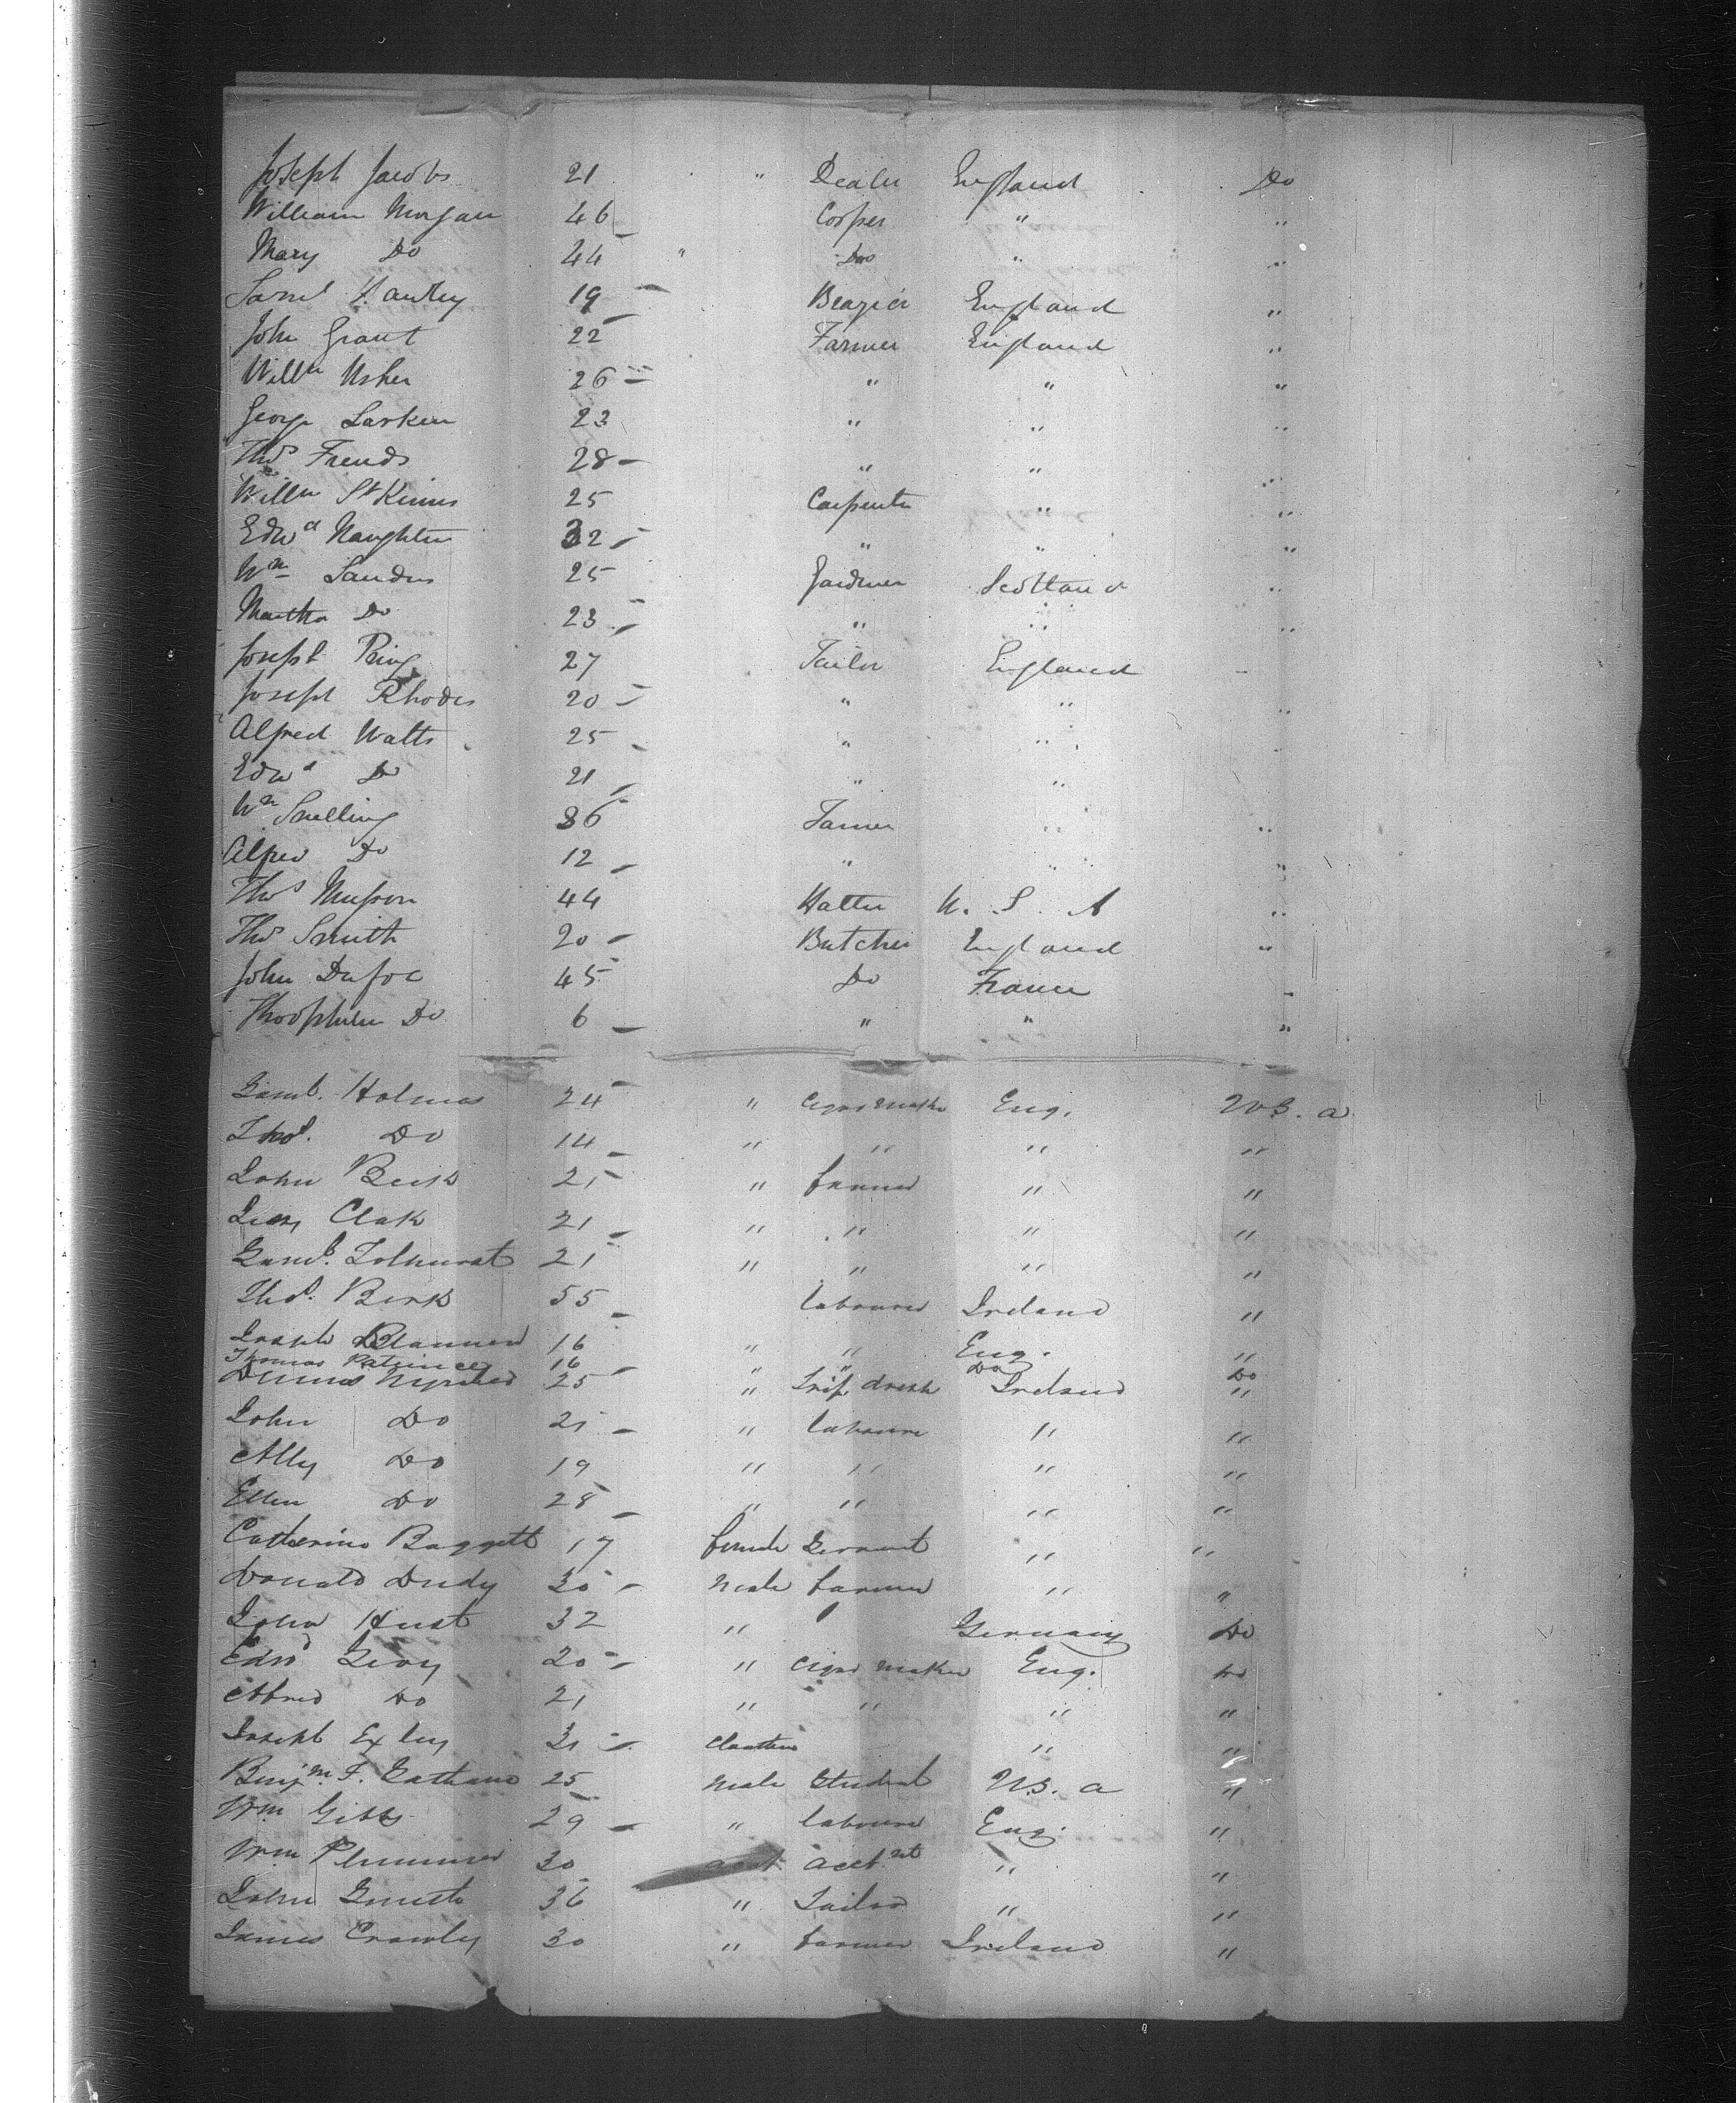 Joseph Jacobs 21 " Dealer England Do
William Morgan 46 Cooper " "
Mary Do 44 " Do " "
Saml Hantey 19 Brazier England "
John Grant 22 Farmer England "
Willm Usher 26 " " "
George Larken 23 " " "
Thos Friends 28 " " "
Willm St Kinns 25 Carpenter " "
Edwd Naughten 32 " " "
Wm Sanders 25 Gardner Scotland "
Martha Do 23 " " "
Joseph Ring 27 Tailor England
Joseph Rhodes 20 " " "
Alfred Watts 25 " " "
Edwd Do 21 " "
Wm Snelling 36 Farmer " "
Alfred Do 12 " " "
Thos Musson 44 Hatter U. S. A "
Thos Smith 20 Butcher England "
John Dufoe 45 Do France
Do 6 " " "
Saml. Holmes 24 " Cigar maker Eng. U.S. a
Thos. Do 14 " " " "
John Beck 21 " farmer " "
Clark 21 " " " "
Saml. Tolhurst 21 " " " "
Thos. Berk 55 labourer Ireland "
Joseph 16 " " Eng. "
Thomas 16 " " Do Do
Dennis 25 " Ireland "
John Do 21 " labourer " "
Ally Do 19 " " " "
Ellen Do 28 " " " "
Catherine Baggett 17 female Servant " "
Donald Dudy 30 male farmer " "
John Hust 32 " Germany Do
Edwd Levy 20 " Cigar maker Eng. Do
Abred Do 21 " " " "
Joseph Exley 31 " "
Benjm. F. 25 male Student U.S. a "
Wm Gibbs 29 " labourer Eng. "
Wm Plummer 30 acct acctnt " "
John 36 " Tailor " "
James Crawley 30 " farmer Ireland "